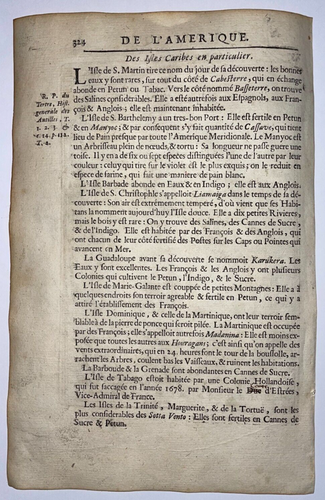 324 DE L'AMERIQUE.
Des Isles Caribes en particulier.
L'Isle de S. Martin tire ce nom du jour de sa découverte : les bonnes
eaux y sont rares, sur tout du côté de Cabesterre, qui en échange
abonde en Petun ou Tabac. Vers le côté nommé Basseterre, on trouve
des Salines considerables. Elle a esté autrefois aux Espagnols, aux Fran-
çois & Anglois; elle est maintenant inhabitée.
R. P. du
Tertre, Hist.
generale des
Antilles, T.
1. 2. 3 &
T. 2.
L'Isle de S. Barthelemy a un tres-bon Port : Elle est fertile en Petun
& en Manyoc; & par consequent s'y fait quantité de Cassave, qui tient
lieu de Pain presque par toute l'Amerique Meridionale. Le Manyoc est
un Arbrisseau plein de nœuds, & tortu : Sa longueur ne passe guere une
toise. Il y en a de six ou sept especes distinguées l'une de l'autre par leur
couleur : celuy qui tire sur le violet est le plus exquis; on le reduit en
espece de farine, qui fait une maniere de pain blanc.
L'Isle Barbade abonde en Eaux & en Indigo; elle est aux Anglois.
L'Isle de S. Christophle s'appelloit Liamaiga dans le temps de sa dé-
couverte : Son air est extrémement temperé, d'où vient que ses Habi-
tans la nomment aujourd'huy l'Isle douce. Elle a dix petites Rivieres,
mais le bois y est rare : On y trouve des Salines, des Cannes de Sucre,
& de l'Indigo. Elle est habitée par des François & des Anglois, qui
ont chacun de leur côté fortifié des Postes sur les Caps ou Pointes qui
avancent en Mer.
La Guadaloupe avant sa découverte se nommoit Karukera. Les
Eaux y sont excellentes. Les François & les Anglois y ont plusieurs
Colonies qui cultivent le Petun, l'Indigo, & le Sucre.
L'Isle de Marie-Galante est coupée de petites Montagnes : Elle a à
quelques endroits son terroir agreable & fertile en Petun, ce qui y a
attiré l'établissement des François.
L'Isle Dominique, & celle de la Martinique, ont leur terroir sem-
blable à de la pierre de ponce qui seroit pilée. La Martinique est occupée
par des François : elles s'appelloit autrefois Madanina : Elle est moins ex-
posée que toutes les autres aux Houragans; c'est ainsi qu'on appelle des
vents extraordinaires, qui en 24. heures font le tour de la boussolle, ar-
rachent les Arbres, coulent bas les Vaisseaux, & ruinent les habitations.
La Barboude & la Grenade sont abondantes en Cannes de Sucre.
L'Isle de Tabago estoit habitée par une Colonie Hollandoise,
qui fut saccagée en l'année 1678. par Monsieur le d'Estrées,
Vice-Admiral de France.
Les Isles de la Trinité, Marguerite, & de la Tortuë, sont les
plus considerables des Sotta Vento : Elles sont fertiles en Cannes de
Sucre & Petun.